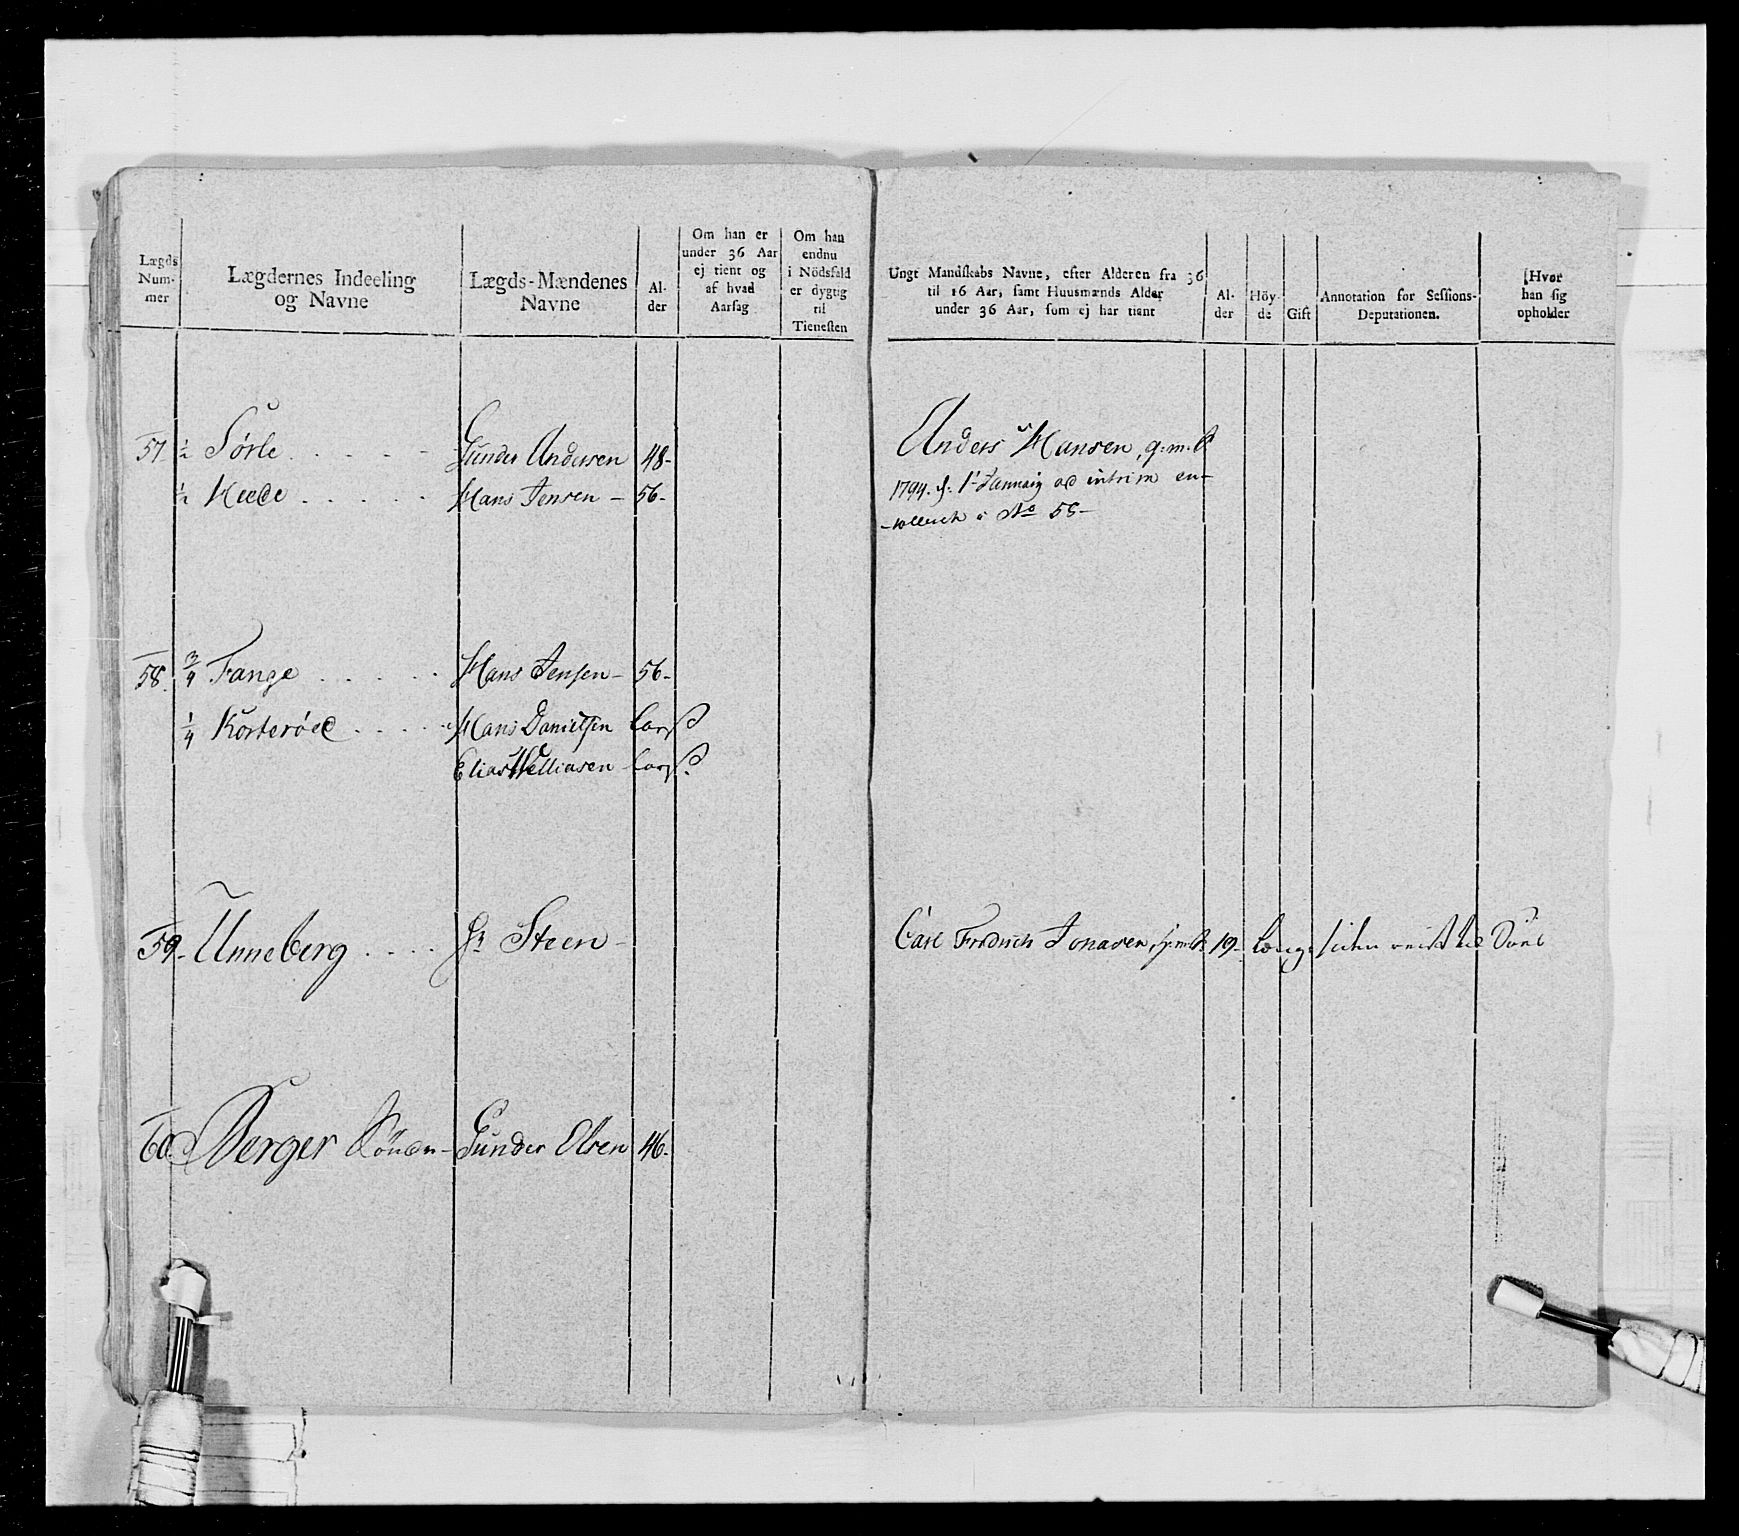 Lægds Num- mer
Lægdernes Indeeling og Navne
Lægds-Mændenes Navne
Al- der
Om han er under 36 Aar ej tient og af hvad Aarsag
Om han endnu i Nödsfald er dygtig til Tienesten
Ungt Mandskabs Navne, efter Alderen fra 36 til 16 Aar, samt Huusmænds Alder under 36 Aar, som ej har tient
Al- der
Höy- de
Gift
Annotation for Sessions- Deputationen.
Hvor han sig opholder
57 ½ Sørle . . . . . Gunder Andersen 48- Anders Hansen, g.m.
½ Heede . . . . . Hans Jensen - 56- 1794. d. 1 Januarij ad intrim en-
i No 58-
58. ¾ Fange . . . . . Hans Jensen - 56-
¼ Korterøed . . . . . Hans Danielsen
Elias
59- Unneberg . . . . Hr Steen - Carl Fredrich Jonasen, 19- længe siden reist til
60. Berger Gunder Olsen 46-